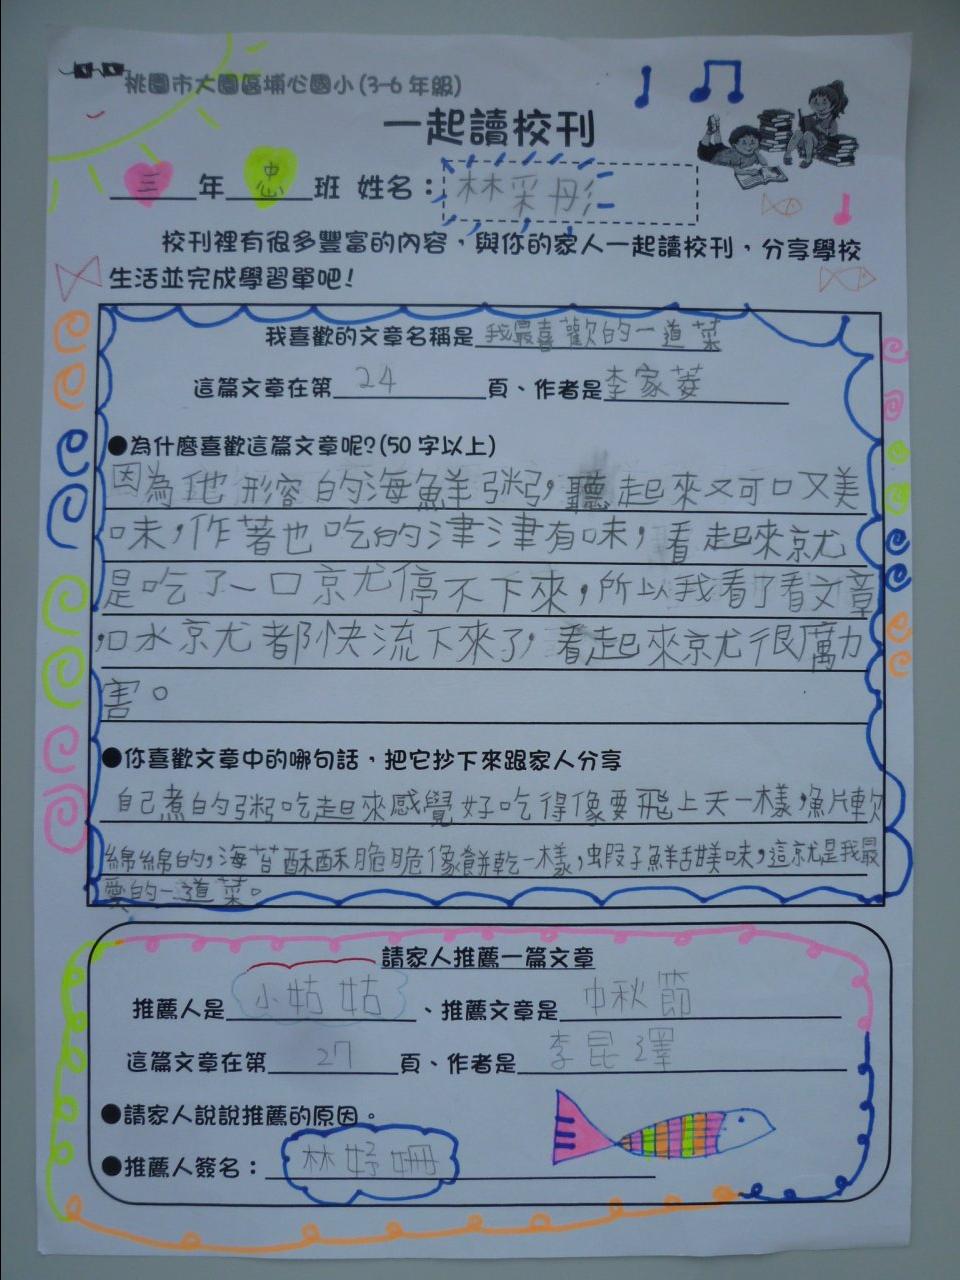 桃園市大園區埔心國小(3-6 年級)
一起讀校刊
三年忠班 姓名：林采彤
校刊裡有很多豐富的內容，與你的家人一起讀校刊，分享學校
生活並完成學習單吧！
我喜歡的文章名稱是我最喜歡的一道菜
這篇文章在第24頁、作者是李家菱
●為什麼喜歡這篇文章呢?(50 字以上)
因為他形容的海鮮粥，聽起來又可口又美
味，作著也吃的津津有味，看起來就
是吃了一口就停不下來，所以我看了看文章
，口水就都快流下來了，看起來就很厲
害。
●你喜歡文章中的哪句話，把它抄下來跟家人分享
自己煮的粥吃起來感覺好吃得像要飛上天一樣，魚片軟
綿綿的，海苔酥酥脆脆像餅乾一樣，蝦子鮮甜美味，這就是我最
愛的一道菜。
請家人推薦一篇文章
推薦人是小姑姑、推薦文章是中秋節
這篇文章在第27頁、作者是李昆澤
●請家人說說推薦的原因。
●推薦人簽名：林妤姍